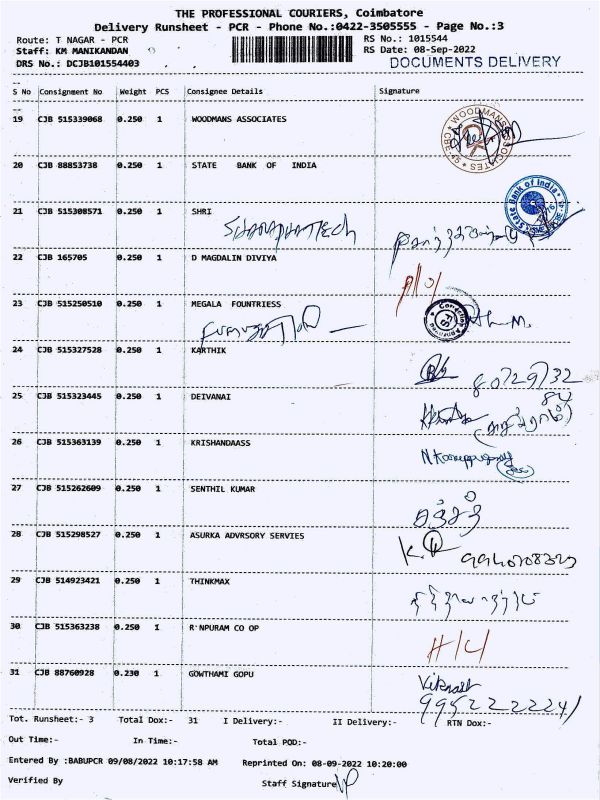 THE PROFESSIONAL COURIERS, Coimbatore
Delivery Runsheet - PCR - Phone No.:0422-3505555 - Page No.:3
Route: T NAGAR - PCR
RS No.: 1015544
Staff: KM MANIKANDAN
RS Date: 08-Sep-2022
DRS No.: DCJB101554403
DOCUMENTS DELIVERY
S No Consignment No Weight PCS Consignee Details Signature
19 CJB 515339068 0.250 1 WOODMANS ASSOCIATES
WOODMANS ASSOCIATES
20 CJB 88853738 0.250 1 STATE BANK OF INDIA
State Bank of India
21 CJB 515308571 0.250 1 SHRI
22 CJB 165705 0.250 1 D MAGDALIN DIVIYA
23 CJB 515250510 0.250 1 MEGALA FOUNTRIESS
24 CJB 515327528 0.250 1 KARTHIK
80729732
84
25 CJB 515323445 0.250 1 DEIVANAI
26 CJB 515363139 0.250 1 KRISHANDAASS
27 CJB 515262609 0.250 1 SENTHIL KUMAR
28 CJB 515298527 0.250 1 ASURKA ADVRSORY SERVIES
29 CJB 514923421 0.250 1 THINKMAX
30 CJB 515363238 0.250 1 R¨NPURAM CO OP
31 CJB 88760928 0.230 1 GOWTHAMI GOPU
9952222241
Tot. Runsheet:- 3 Total Dox:- 31 I Delivery:- II Delivery:- RTN Dox:-
Out Time:- In Time:- Total POD:-
Entered By :BABUPCR 09/08/2022 10:17:58 AM Reprinted On: 08-09-2022 10:20:00
Verified By Staff Signature